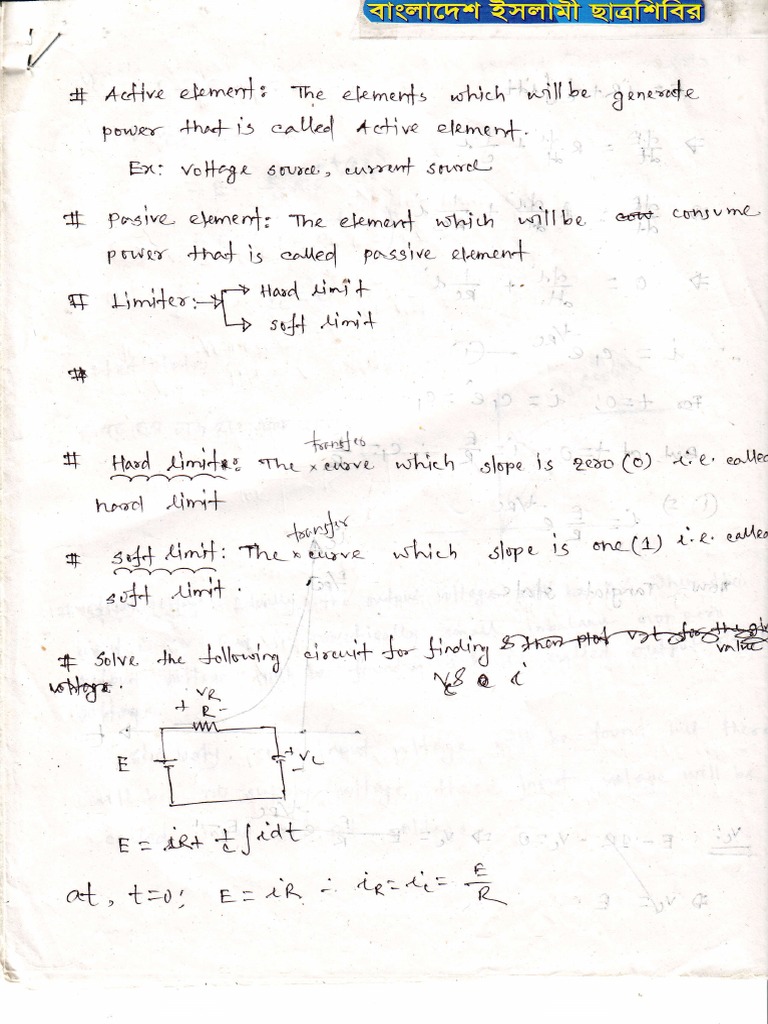 বাংলাদেশ ইসলামী ছাত্রশিবির
# Active element: The elements which will be generate
power that is called Active element.
Ex: voltage source, current source
# Pasive element: The element which will be consume
power that is called passive element
# Limiter: Hard limit
soft limit
#
# Hard limit: The transfer curve which slope is zero (0) i.e. called
hard limit
# soft limit: The transfer curve which slope is one (1) i.e. called
soft limit.
# Solve the following circuit for finding
Vc & i
VR
+ R -
E
+ Vc
-
E = iR + 1/c ∫ idt
at, t=0; E = iR ∴ iR = ic = E/R